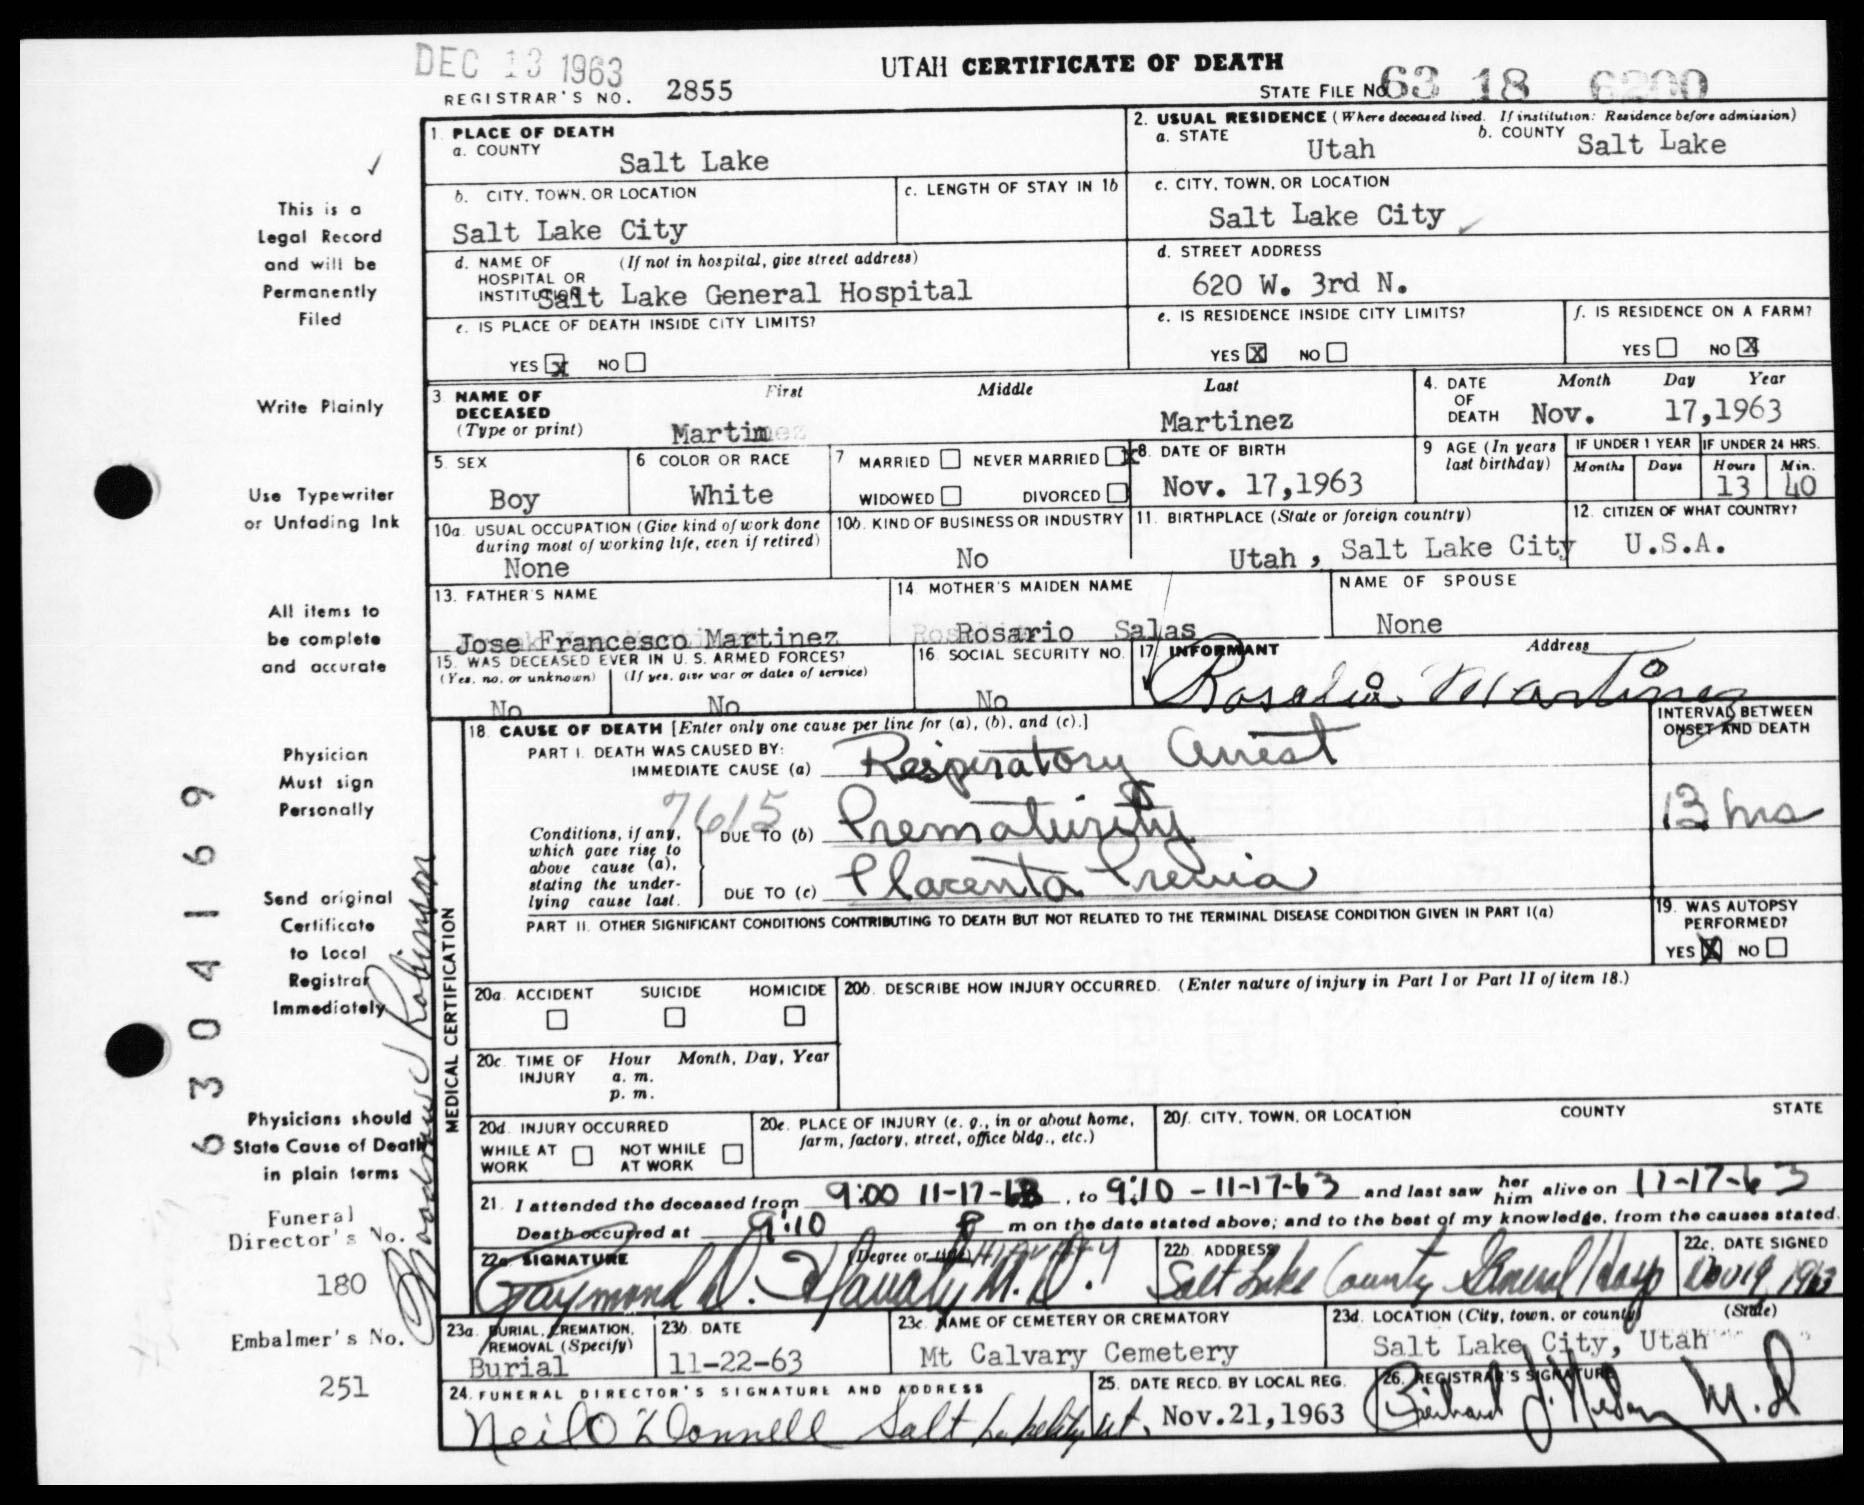 DEC 13 1963
UTAH CERTIFICATE OF DEATH
REGISTRAR'S NO. 2855
STATE FILE NO. 63 18 6200
1. PLACE OF DEATH
a. COUNTY
Salt Lake
2. USUAL RESIDENCE (Where deceased lived. If institution: Residence before admission)
a. STATE Utah b. COUNTY Salt Lake
b. CITY, TOWN, OR LOCATION
Salt Lake City
c. LENGTH OF STAY IN 1b
c. CITY, TOWN, OR LOCATION
Salt Lake City
d. NAME OF HOSPITAL OR INSTITUTION (If not in hospital, give street address)
Salt Lake General Hospital
d. STREET ADDRESS
620 W. 3rd N.
e. IS PLACE OF DEATH INSIDE CITY LIMITS?
YES X NO
e. IS RESIDENCE INSIDE CITY LIMITS?
YES X NO
f. IS RESIDENCE ON A FARM?
YES NO X
3. NAME OF DECEASED (Type or print)
First Middle Last
Martin Martinez
4. DATE OF DEATH Month Day Year
Nov. 17,1963
5. SEX
Boy
6 COLOR OR RACE
White
7 MARRIED NEVER MARRIED X
WIDOWED DIVORCED
8. DATE OF BIRTH
Nov. 17,1963
9 AGE (In years last birthday)
IF UNDER 1 YEAR IF UNDER 24 HRS.
Months Days Hours Min.
13 40
10a. USUAL OCCUPATION (Give kind of work done during most of working life, even if retired)
None
10b. KIND OF BUSINESS OR INDUSTRY
No
11. BIRTHPLACE (State or foreign country)
Utah, Salt Lake City
12. CITIZEN OF WHAT COUNTRY?
U.S.A.
13. FATHER'S NAME
Jose Francesco Martinez
14 MOTHER'S MAIDEN NAME
Rosario Salas
NAME OF SPOUSE
None
15. WAS DECEASED EVER IN U.S. ARMED FORCES?
(Yes, no, or unknown) (If yes, give war or dates of service)
No No
16. SOCIAL SECURITY NO.
No
17 INFORMANT Address
Rosalia Martinez
18. CAUSE OF DEATH [Enter only one cause per line for (a), (b), and (c).]
INTERVAL BETWEEN ONSET AND DEATH
PART I. DEATH WAS CAUSED BY:
IMMEDIATE CAUSE (a) Respiratory Arrest
7615
Conditions, if any, which gave rise to above cause (a), stating the underlying cause last.
DUE TO (b) Prematurity
13 hrs
DUE TO (c) Placenta Previa
PART II. OTHER SIGNIFICANT CONDITIONS CONTRIBUTING TO DEATH BUT NOT RELATED TO THE TERMINAL DISEASE CONDITION GIVEN IN PART I(a)
19. WAS AUTOPSY PERFORMED?
YES X NO
MEDICAL CERTIFICATION
20a. ACCIDENT SUICIDE HOMICIDE
20b. DESCRIBE HOW INJURY OCCURRED. (Enter nature of injury in Part I or Part II of item 18.)
20c. TIME OF INJURY Hour Month, Day, Year
a. m.
p. m.
20d. INJURY OCCURRED
WHILE AT WORK NOT WHILE AT WORK
20e. PLACE OF INJURY (e. g., in or about home, farm, factory, street, office bldg., etc.)
20f. CITY, TOWN, OR LOCATION COUNTY STATE
21. I attended the deceased from 9:00 11-17-63, to 9:10 - 11-17-63 and last saw her him alive on 11-17-63
Death occurred at 9:10 P m on the date stated above; and to the best of my knowledge, from the causes stated.
22a. SIGNATURE (Degree or title)
Raymond D. M.D.
22b. ADDRESS
Salt Lake County General Hosp
22c. DATE SIGNED
Nov 19, 1963
23a. BURIAL, CREMATION, REMOVAL (Specify)
Burial
23b. DATE
11-22-63
23c. NAME OF CEMETERY OR CREMATORY
Mt Calvary Cemetery
23d. LOCATION (City, town, or county) (State)
Salt Lake City, Utah
24. FUNERAL DIRECTOR'S SIGNATURE AND ADDRESS
Neil O'Donnell Salt Lake City Ut.
25. DATE RECD. BY LOCAL REG.
Nov.21,1963
26. REGISTRAR'S SIGNATURE
M.D
This is a
Legal Record
and will be
Permanently
Filed
Write Plainly
Use Typewriter
or Unfading Ink
All items to
be complete
and accurate
Physician
Must sign
Personally
Send original
Certificate
to Local
Registrar
Immediately
Physicians should
State Cause of Death
in plain terms
Funeral
Director's No.
180
Embalmer's No.
251
Woodrow J Robinson
6304169